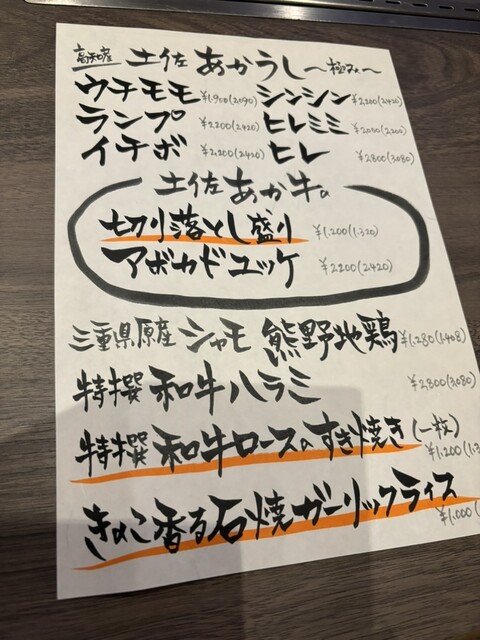 高知産 土佐あかうし〜極み〜
ウチモモ ¥1,900(2,090) シンシン ¥2,200(2,420)
ランプ ¥2,200(2,420) ヒレミミ ¥2,000(2,200)
イチボ ¥2,200(2,420) ヒレ ¥2,800(3,080)
土佐あか牛の
切り落とし盛り ¥1,200(1,320)
アボカドユッケ ¥2,200(2,420)
三重県原産 シャモ 熊野地鶏 ¥1,280(1,408)
特撰 和牛ハラミ ¥2,800(3,080)
特撰 和牛ロースのすき焼き(一枚)
¥1,200(1,3
きのこ香る石焼ガーリックライス
¥1,000(